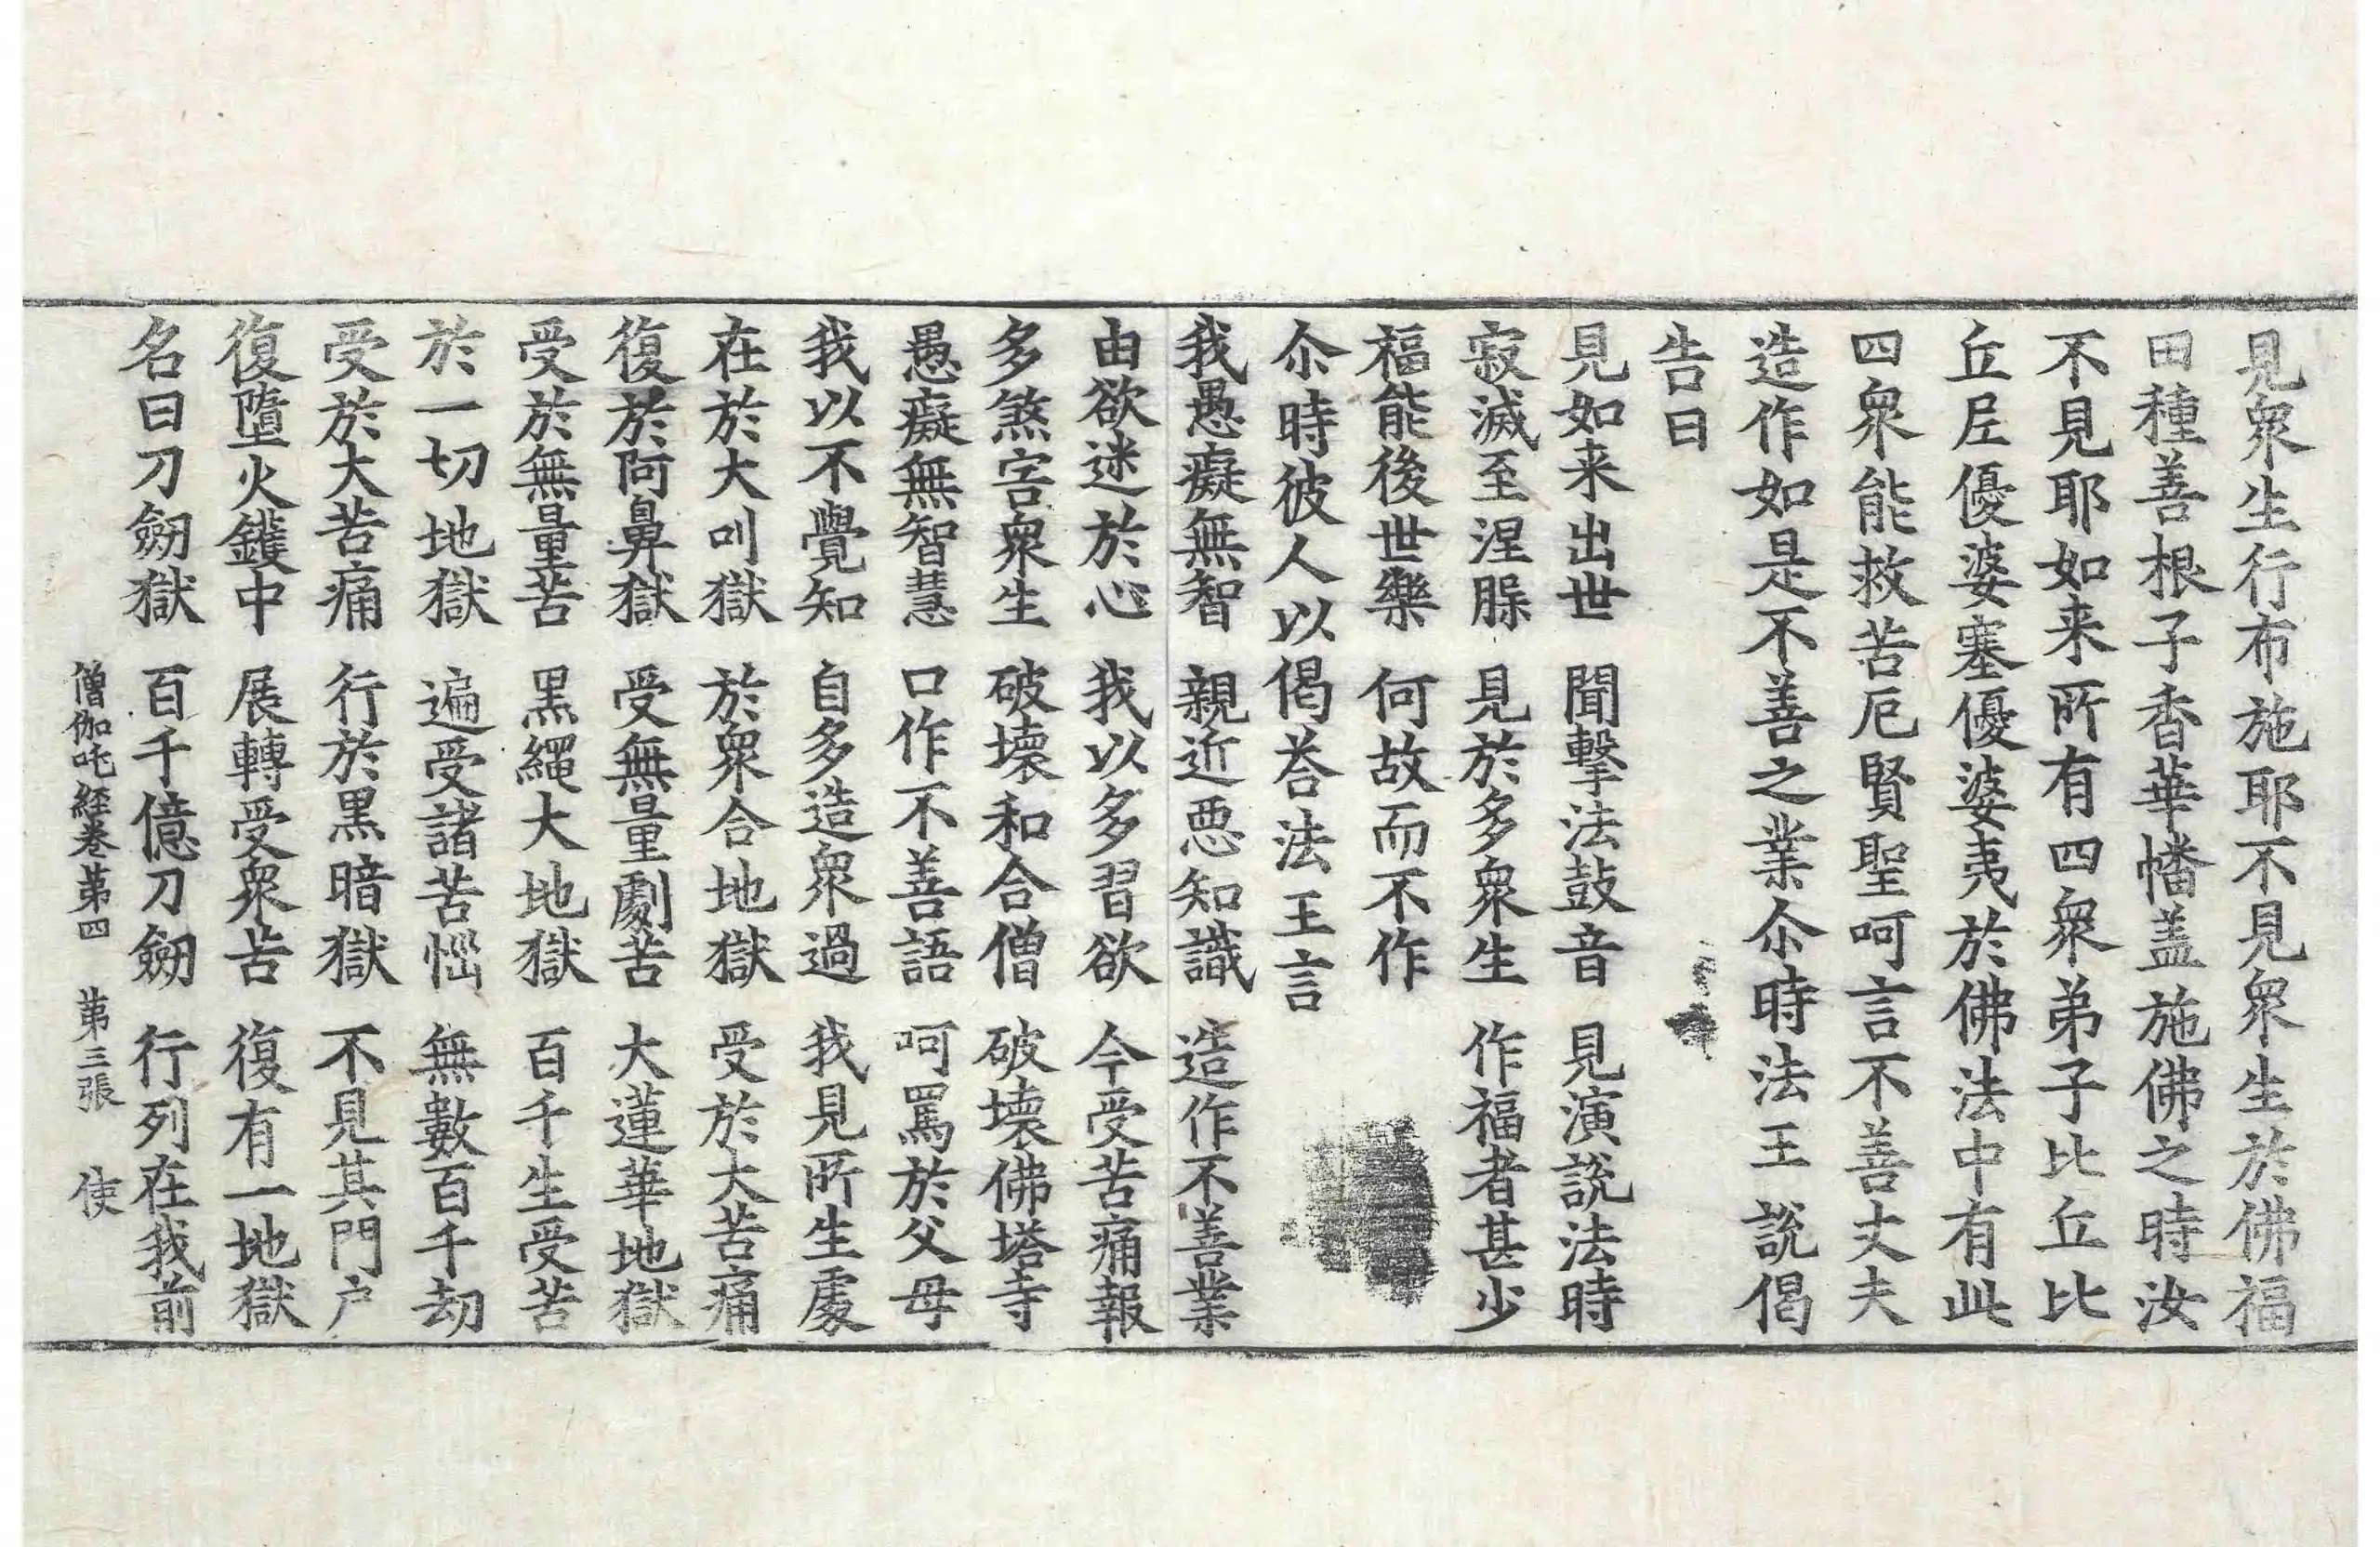 見衆生行布施耶不見衆生於佛福
田種善根子香華幡盖施佛之時汝
不見耶如来所有四衆弟子比丘比
丘尼優婆塞優婆夷於佛法中有此
四衆能救苦厄賢聖呵言不善丈夫
造作如是不善之業尒時法王說偈
告曰
見如来出世　聞擊法鼓音　見演說法時
寂滅至涅腺　見於多衆生　作福者甚少
福能後世樂　何故而不作
尒時彼人以偈荅法王言
我愚癡無智　親近惡知識　造作不善業
由欲迷於心　我以多習欲　今受苦痛報
多煞害衆生　破壞和合僧　破壞佛塔寺
愚癡無智慧　口作不善語　呵罵於父母
我以不覺知　自多造衆過　我見所生處
在於大叫獄　於衆合地獄　受於大苦痛
復於阿鼻獄　受無量劇苦　大蓮華地獄
受於無量苦　黑繩大地獄　百千生受苦
於一切地獄　遍受諸苦惱　無數百千劫
受於大苦痛　行於黑暗獄　不見其門户
復墮火鑊中　展轉受衆苦　復有一地獄
名曰刀劒獄　百千億刀劒　行列在我前
僧伽吒経卷第四　第三張　使